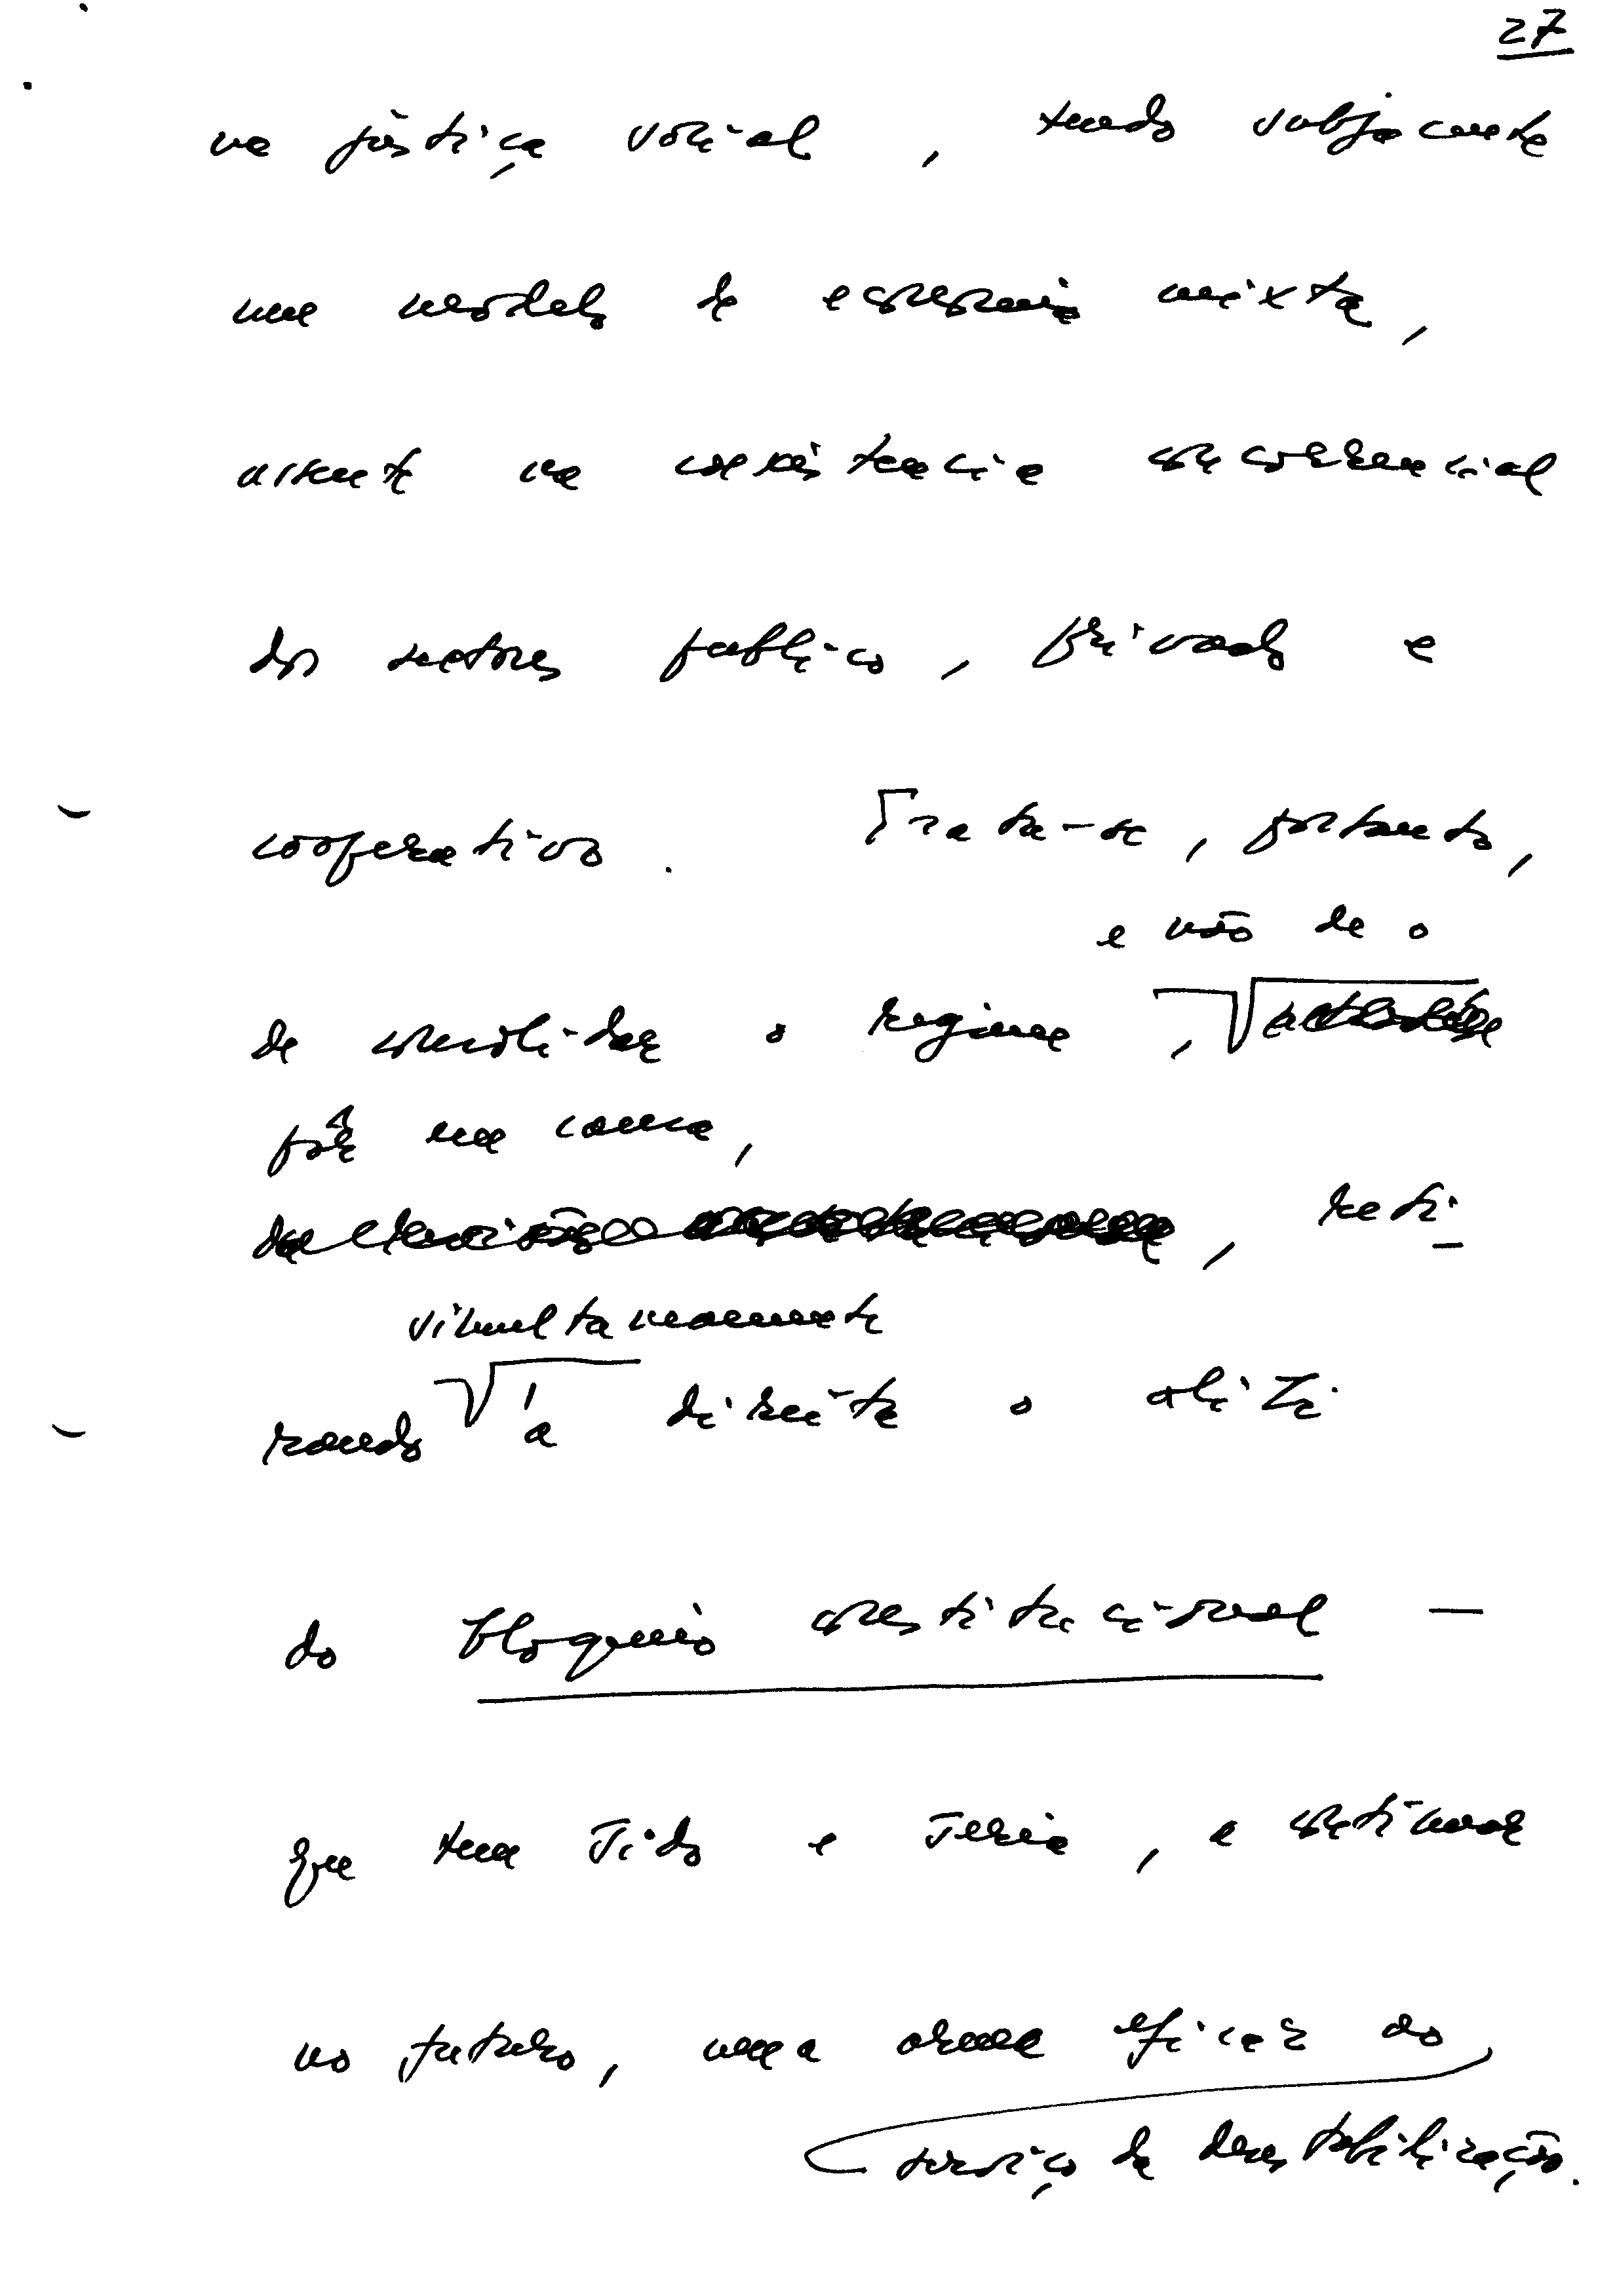 27
na justiça social, tendo subjacente
um modelo de economia mixta,
assente na coexistencia concorrencial
dos sectores publico, privado e
cooperativo. Trata-se, portanto,
e não de o
de consolidar o regime,
pôr em causa,
, reti-
simultaneamente
rando à direita o aliZi
do bloqueio constitucional —
que tem sido e seria, a continuar
no futuro, uma arma eficaz ao
serviço da desestabilização.